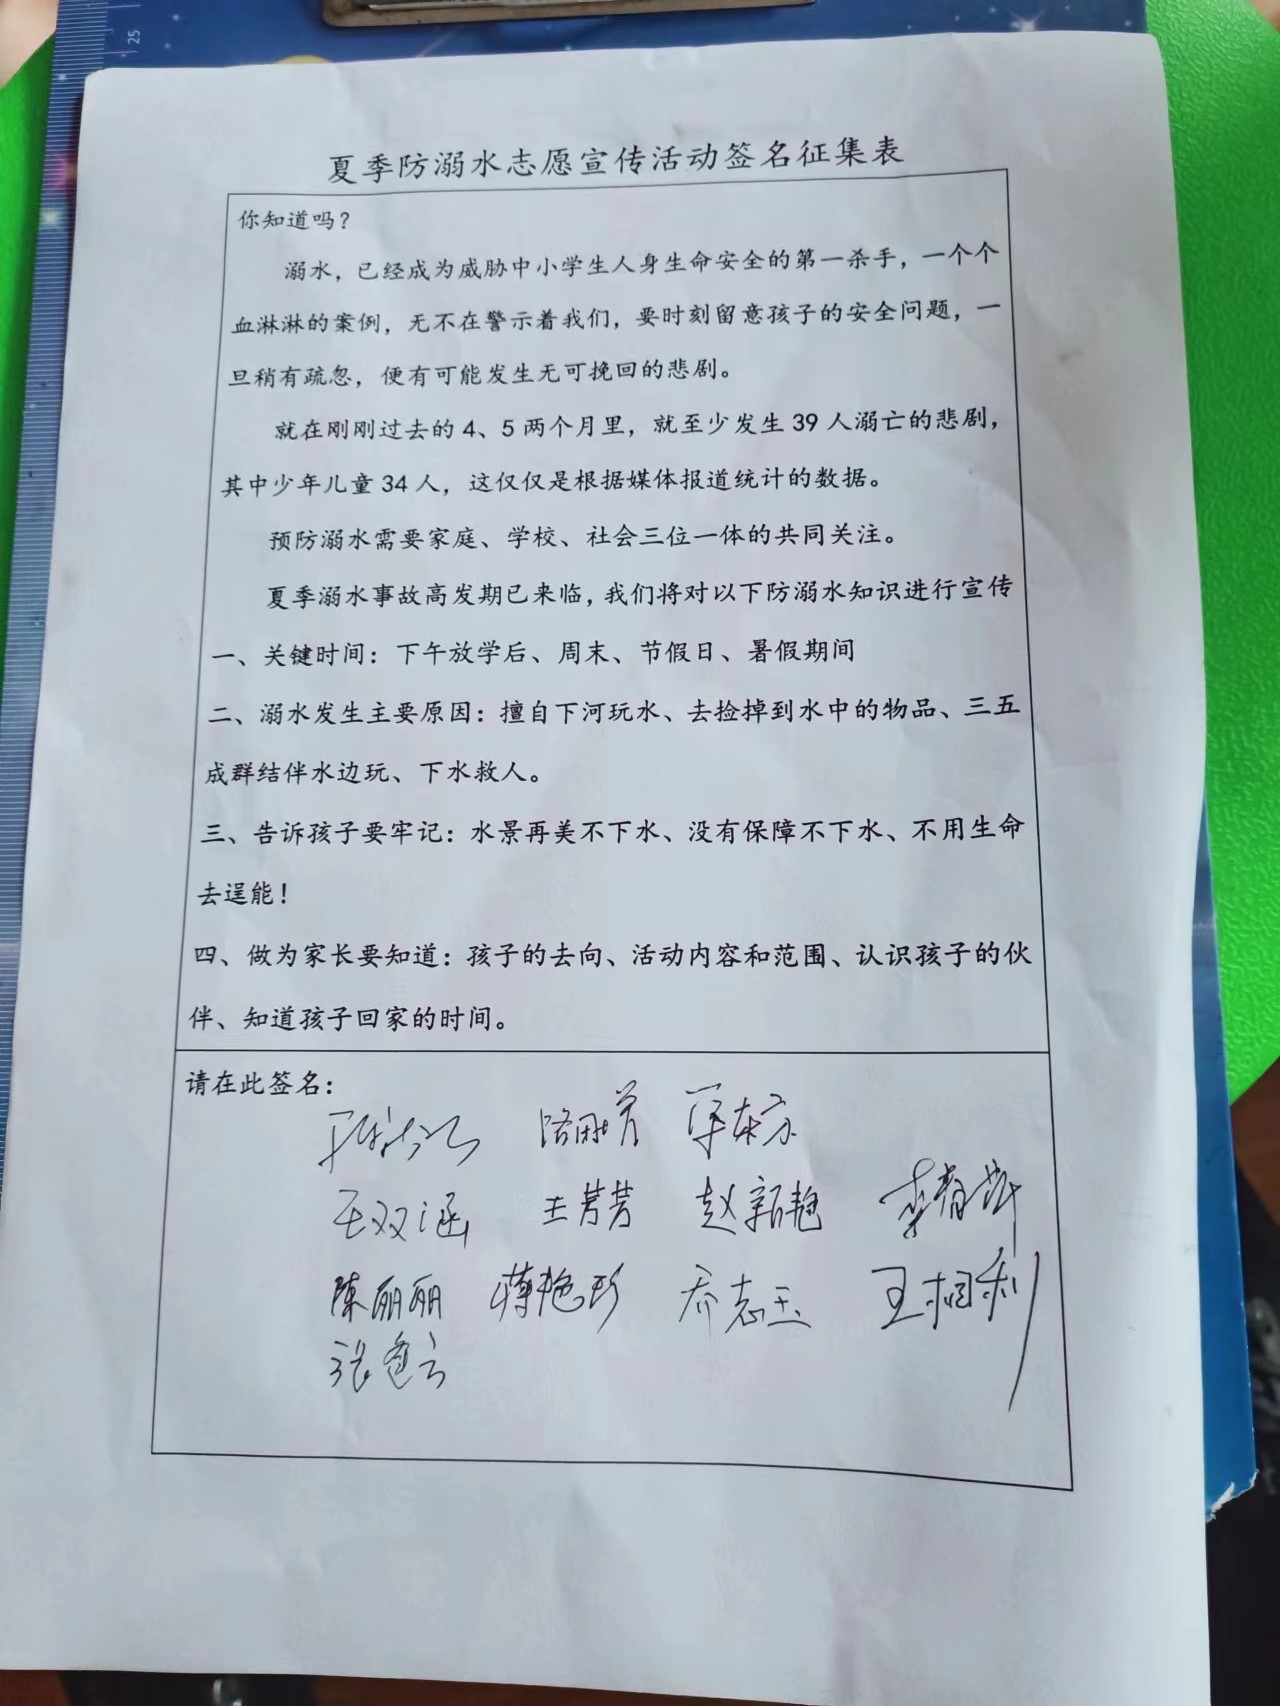 25
夏季防溺水志愿宣传活动签名征集表
你知道吗？
溺水，已经成为威胁中小学生人身生命安全的第一杀手，一个个
血淋淋的案例，无不在警示着我们，要时刻留意孩子的安全问题，一
旦稍有疏忽，便有可能发生无可挽回的悲剧。
就在刚刚过去的4、5两个月里，就至少发生39人溺亡的悲剧，
其中少年儿童34人，这仅仅是根据媒体报道统计的数据。
预防溺水需要家庭、学校、社会三位一体的共同关注。
夏季溺水事故高发期已来临，我们将对以下防溺水知识进行宣传
一、关键时间：下午放学后、周末、节假日、暑假期间
二、溺水发生主要原因：擅自下河玩水、去捡掉到水中的物品、三五
成群结伴水边玩、下水救人。
三、告诉孩子要牢记：水景再美不下水、没有保障不下水、不用生命
去逞能！
四、做为家长要知道：孩子的去向、活动内容和范围、认识孩子的伙
伴、知道孩子回家的时间。
请在此签名：
王双涵 王芳芳 赵新艳
陈丽丽 蒋艳珍 乔志玉 王相利